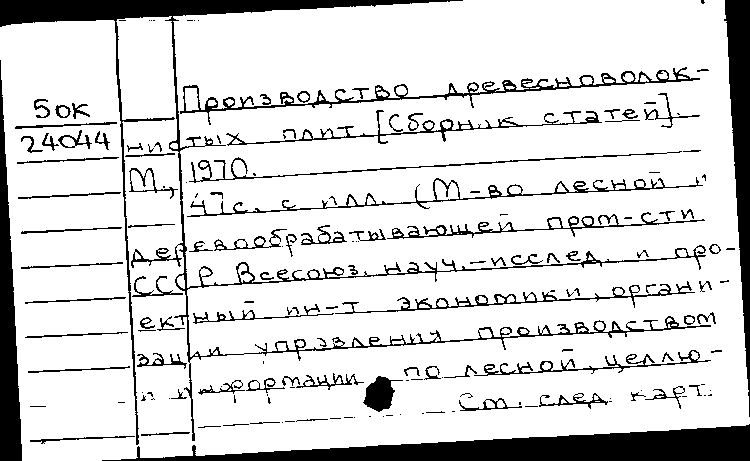 Производство древесноволок-
5ок
24044
нистых плит. [Сборник статей].
М., 1970.
47с. с илл. (М-во лесной и
деревообрабатывающей пром-сти
СССР. Всесоюз. науч.-исслед. и про-
ектный ин-т экономики, органи-
зации управления производством
и информации по лесной, целлю-
См. след. карт.